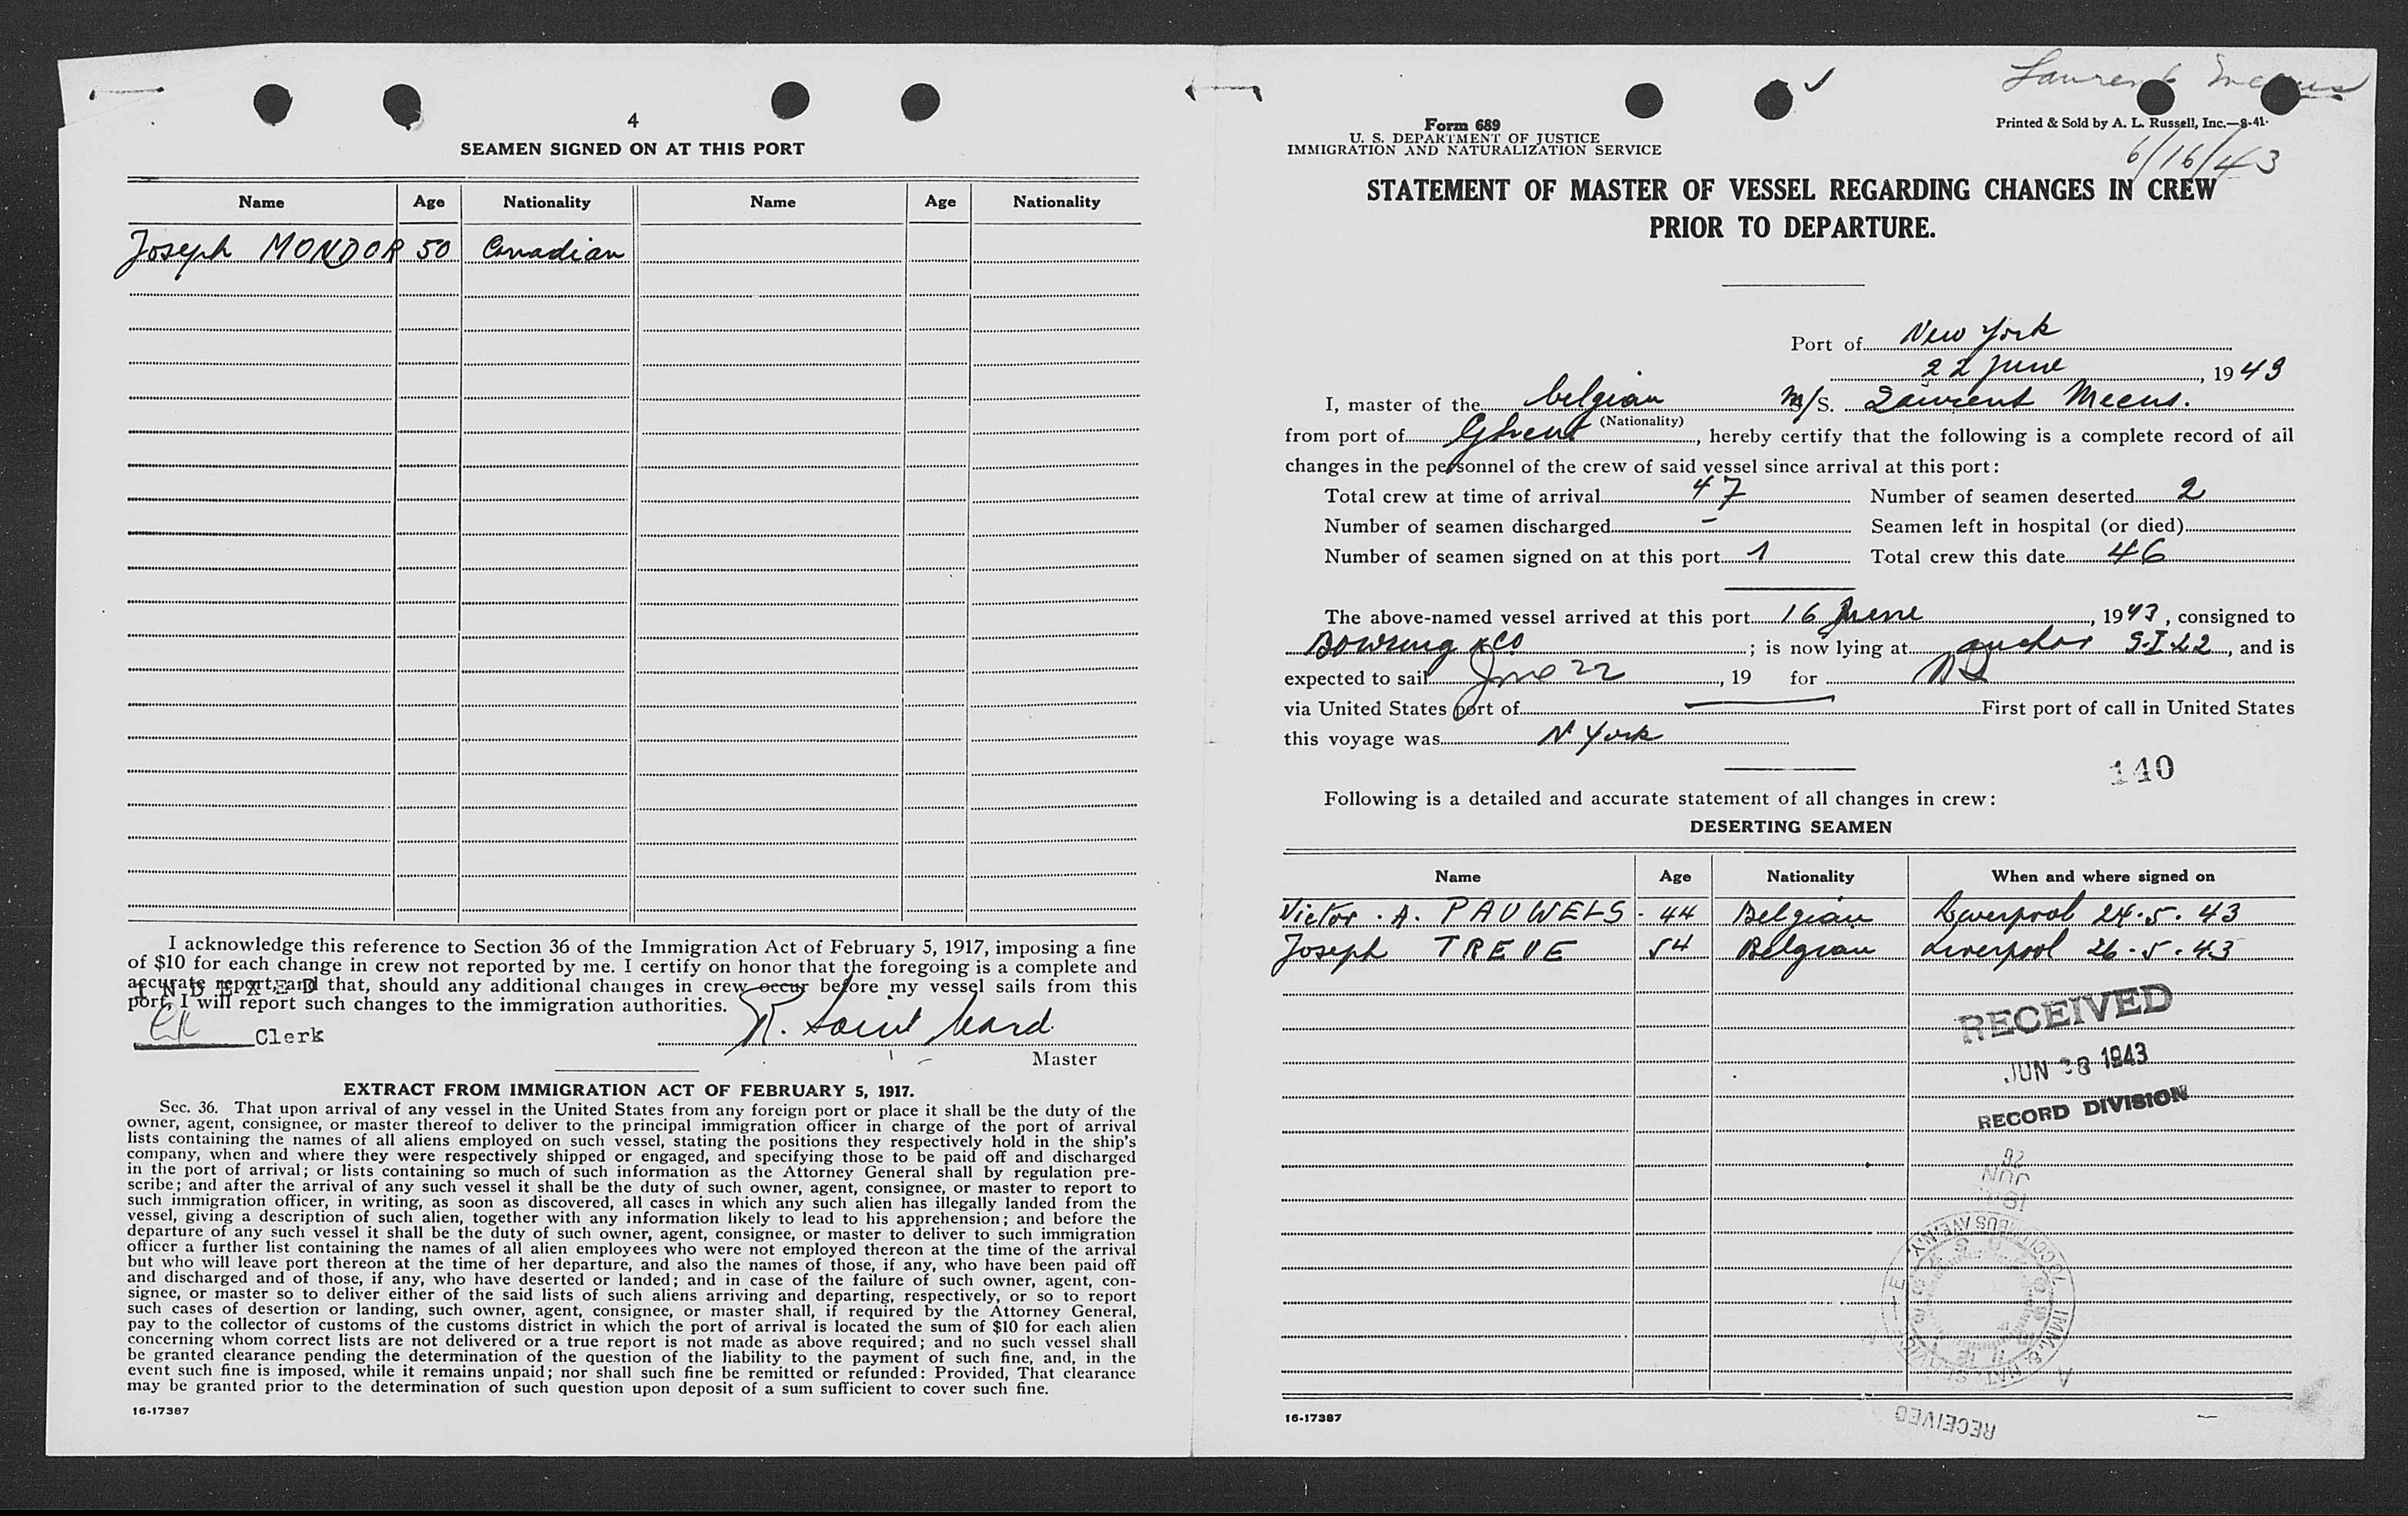 4
SEAMEN SIGNED ON AT THIS PORT
Name Age Nationality Name Age Nationality
Joseph MONDOR 50 Canadian
I acknowledge this reference to Section 36 of the Immigration Act of February 5, 1917, imposing a fine
of $10 for each change in crew not reported by me. I certify on honor that the foregoing is a complete and
accurate report, and that, should any additional changes in crew occur before my vessel sails from this
INDEXED
port, I will report such changes to the immigration authorities.
Clerk
R. Saint
Master
EXTRACT FROM IMMIGRATION ACT OF FEBRUARY 5, 1917.
Sec. 36. That upon arrival of any vessel in the United States from any foreign port or place it shall be the duty of the
owner, agent, consignee, or master thereof to deliver to the principal immigration officer in charge of the port of arrival
lists containing the names of all aliens employed on such vessel, stating the positions they respectively hold in the ship's
company, when and where they were respectively shipped or engaged, and specifying those to be paid off and discharged
in the port of arrival; or lists containing so much of such information as the Attorney General shall by regulation pre-
scribe; and after the arrival of any such vessel it shall be the duty of such owner, agent, consignee, or master to report to
such immigration officer, in writing, as soon as discovered, all cases in which any such alien has illegally landed from the
vessel, giving a description of such alien, together with any information likely to lead to his apprehension; and before the
departure of any such vessel it shall be the duty of such owner, agent, consignee, or master to deliver to such immigration
officer a further list containing the names of all alien employees who were not employed thereon at the time of the arrival
but who will leave port thereon at the time of her departure, and also the names of those, if any, who have been paid off
and discharged and of those, if any, who have deserted or landed; and in case of the failure of such owner, agent, con-
signee, or master so to deliver either of the said lists of such aliens arriving and departing, respectively, or so to report
such cases of desertion or landing, such owner, agent, consignee, or master shall, if required by the Attorney General,
pay to the collector of customs of the customs district in which the port of arrival is located the sum of $10 for each alien
concerning whom correct lists are not delivered or a true report is not made as above required; and no such vessel shall
be granted clearance pending the determination of the question of the liability to the payment of such fine, and, in the
event such fine is imposed, while it remains unpaid; nor shall such fine be remitted or refunded: Provided, That clearance
may be granted prior to the determination of such question upon deposit of a sum sufficient to cover such fine.
16-17387
Laurent Meeus
Form 689
U. S. DEPARTMENT OF JUSTICE
IMMIGRATION AND NATURALIZATION SERVICE
Printed & Sold by A. L. Russell, Inc.—8-41.
6/16/43
STATEMENT OF MASTER OF VESSEL REGARDING CHANGES IN CREW
PRIOR TO DEPARTURE.
Port of New York
22 June, 1943
I, master of the belgian M/S. Laurent Meeus.
(Nationality)
from port of Ghent, hereby certify that the following is a complete record of all
changes in the personnel of the crew of said vessel since arrival at this port:
Total crew at time of arrival 47 Number of seamen deserted 2
Number of seamen discharged - Seamen left in hospital (or died)
Number of seamen signed on at this port 1 Total crew this date 46
The above-named vessel arrived at this port 16 June, 1943, consigned to
Bowring & Co; is now lying at anchor, and is
expected to sail June 22, 19 for
via United States port of First port of call in United States
this voyage was N York
140
Following is a detailed and accurate statement of all changes in crew:
DESERTING SEAMEN
Name Age Nationality When and where signed on
Victor. A. PAUWELS - 44 Belgian Liverpool 24.5.43
Joseph TREVE 54 Belgian Liverpool 26-5.43
RECEIVED
JUN 1943
RECORD DIVISION
JUN
RECEIVED
16-17387